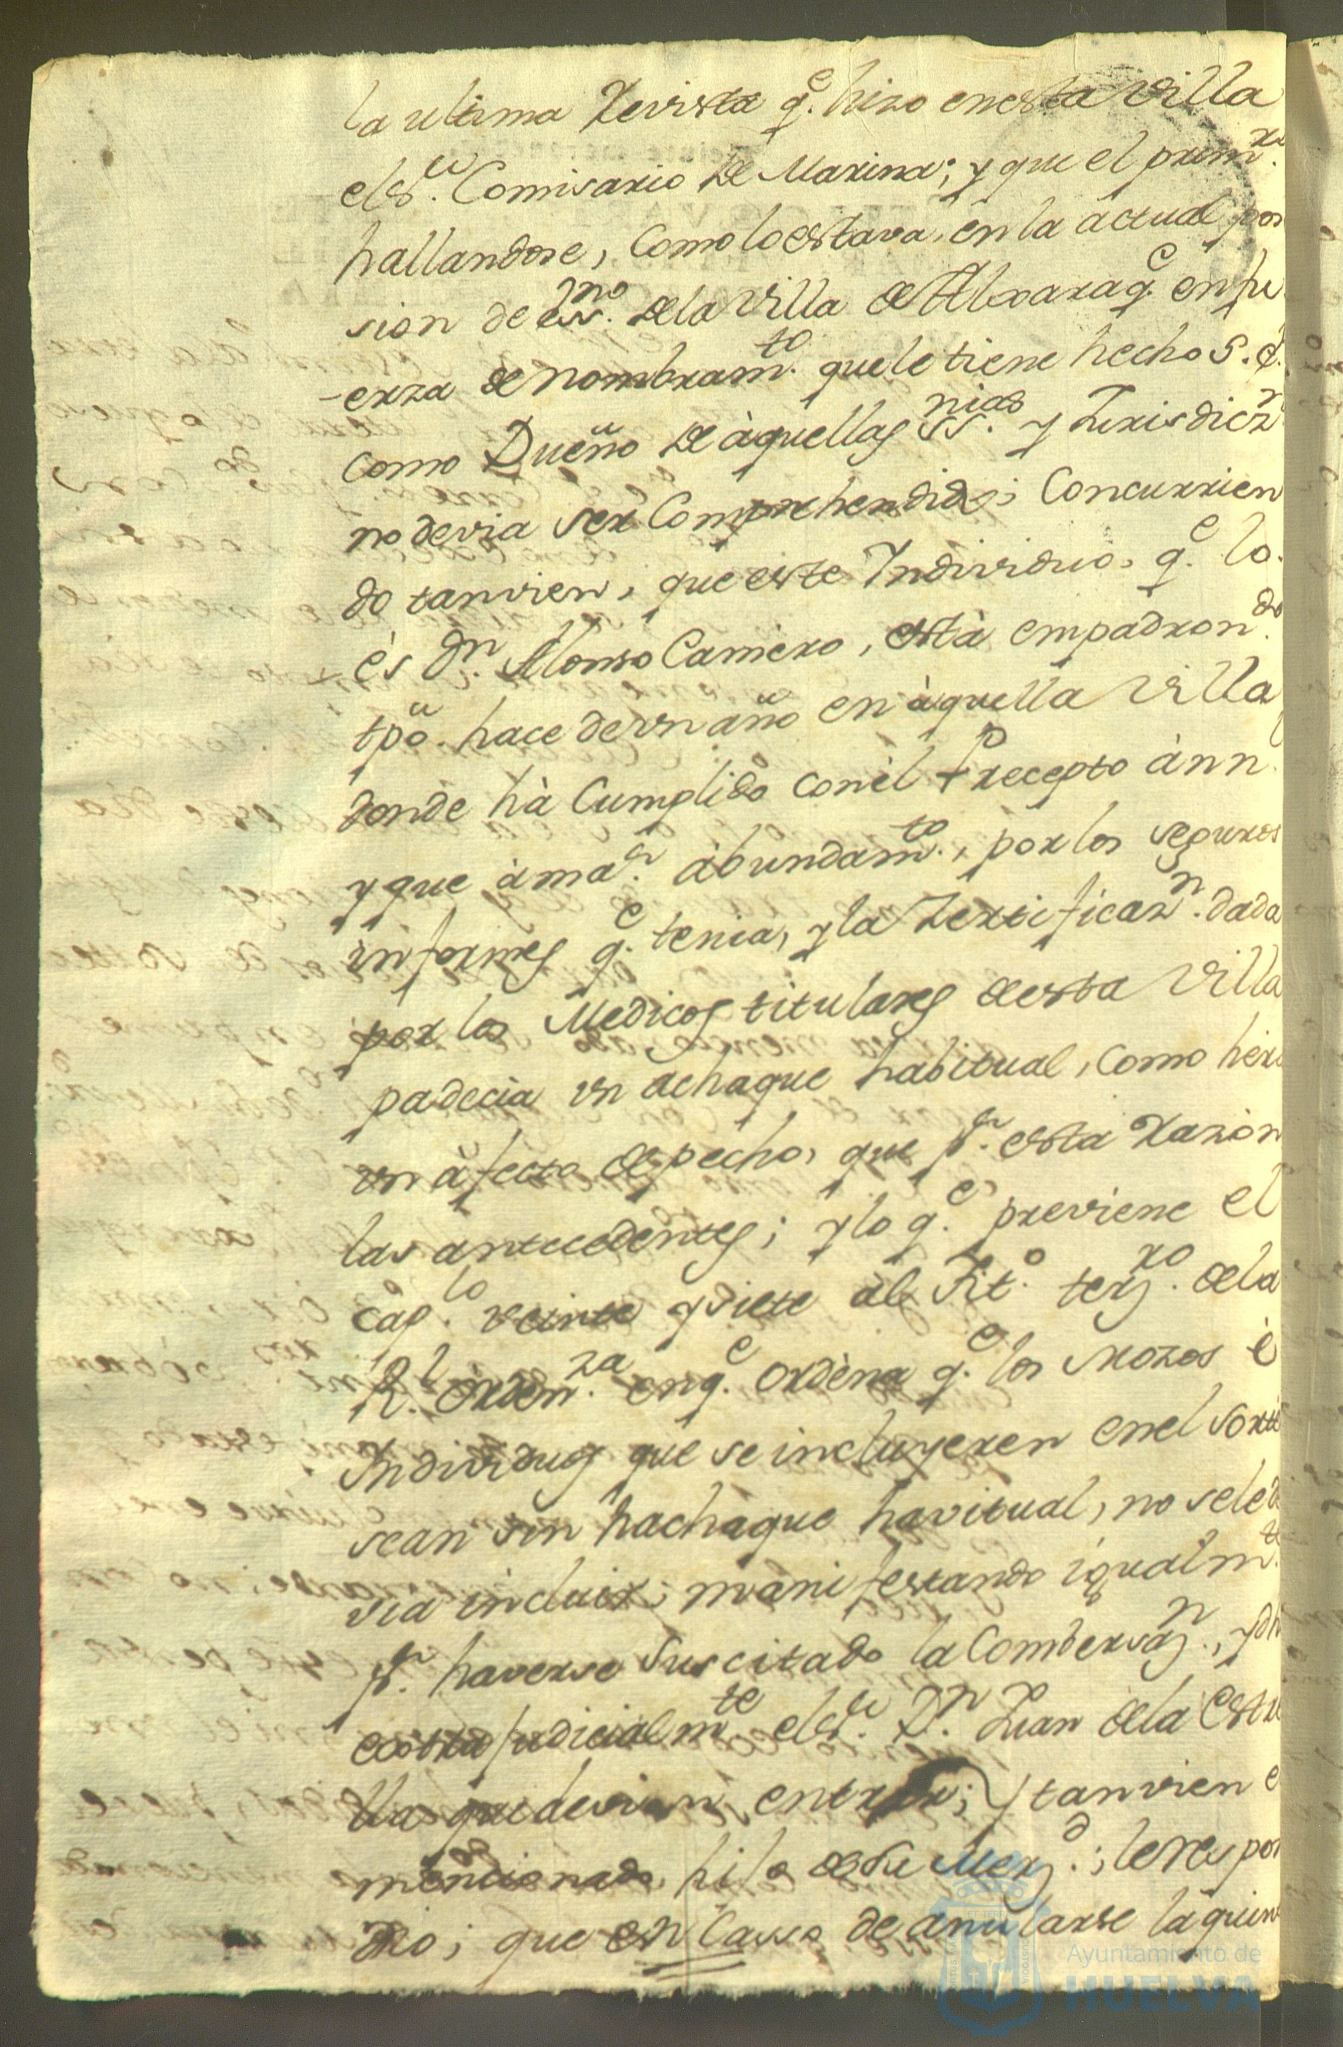 la ultima Revista q.e hizo en esta Villa
el S.or Comisario de Marina; y que el prim.ro
hallandose, como lo estava, en la actual pos
sion de Ess.no de la Villa de Alxaraq.e en fu
-erza de nombram.to que le tiene hecho S. E.
como Dueño de àquellas Ss.nias y Jurisdicz.n
no devia ser Comprehendido; Concurrien
do tanvien, que este Individuo, q.e lo
és d.n Alonso Carniero, està empadron.do
tpõ. hace de vn año en àquella Villa
donde hà Cumplido con èl Precepto ànn.
y que àma.r àbundam.to, por los seguros
informes q.e tenia, y la Zertificaz.n dada
por los Medicos titulares de esta Villa
padecia vn achaque habitual, como hera
vn àfecto de pecho, que p.r esta razon
las antecedentes; y lo q.e previene el
Cap.lo veinte y siete al Tit.o terz.ro de la
R.l Orden.za en q.e Ordèna q.e los Mozos è
Individuos que se incluyeren en el sorte
sean sin hachaque havitual, no se le de
via incluir; manifestando igualm.te
p.r haverse suscitado la Combersaz.n, y dh
extrajudicialm.te el S.r D.n Juan de la Estre
lla que devian entrar; y tanvien e
mencionado hijo de su Merz.d; le respon
dio; que en Casso de anularse la quin
Ayuntamiento de
HUELVA